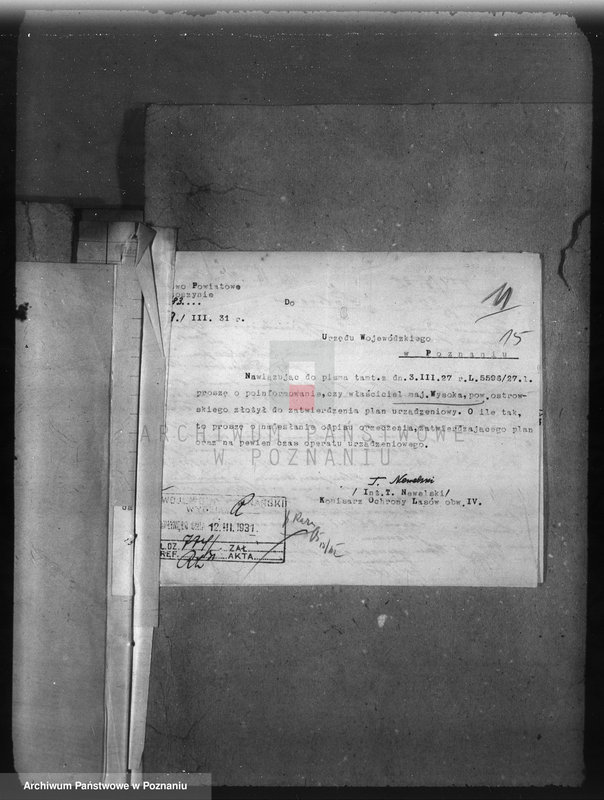 wo Powiatowe
oszynie
93....
9./ III. 31 r.
Do
11
15
Urzędu Wojewódzkiego
w Poznaniu
Nawiązując do pisma tamt.z dn.3.III.27 r.L.5596/27.1.
proszę o poinformowanie,czy właściciel maj.Wysoka,pow.ostrow-
skiego złożył do zatwierdzenia plan urządzeniowy. O ile tak,
to proszę o nadesłanie odpisu orzeczenia,zatwierdzającego plan
oraz na pewien czas operatu urządzeniowego.
ARCHIWUM PAŃSTWOWE
W POZNANIU
T. Newelski
/ Inż.T. Newelski/
Komisarz Ochrony Lasów obw.IV.
12.III.1931
L.DZ. ZAŁ.
REF. AKTA
Archiwum Państwowe w Poznaniu